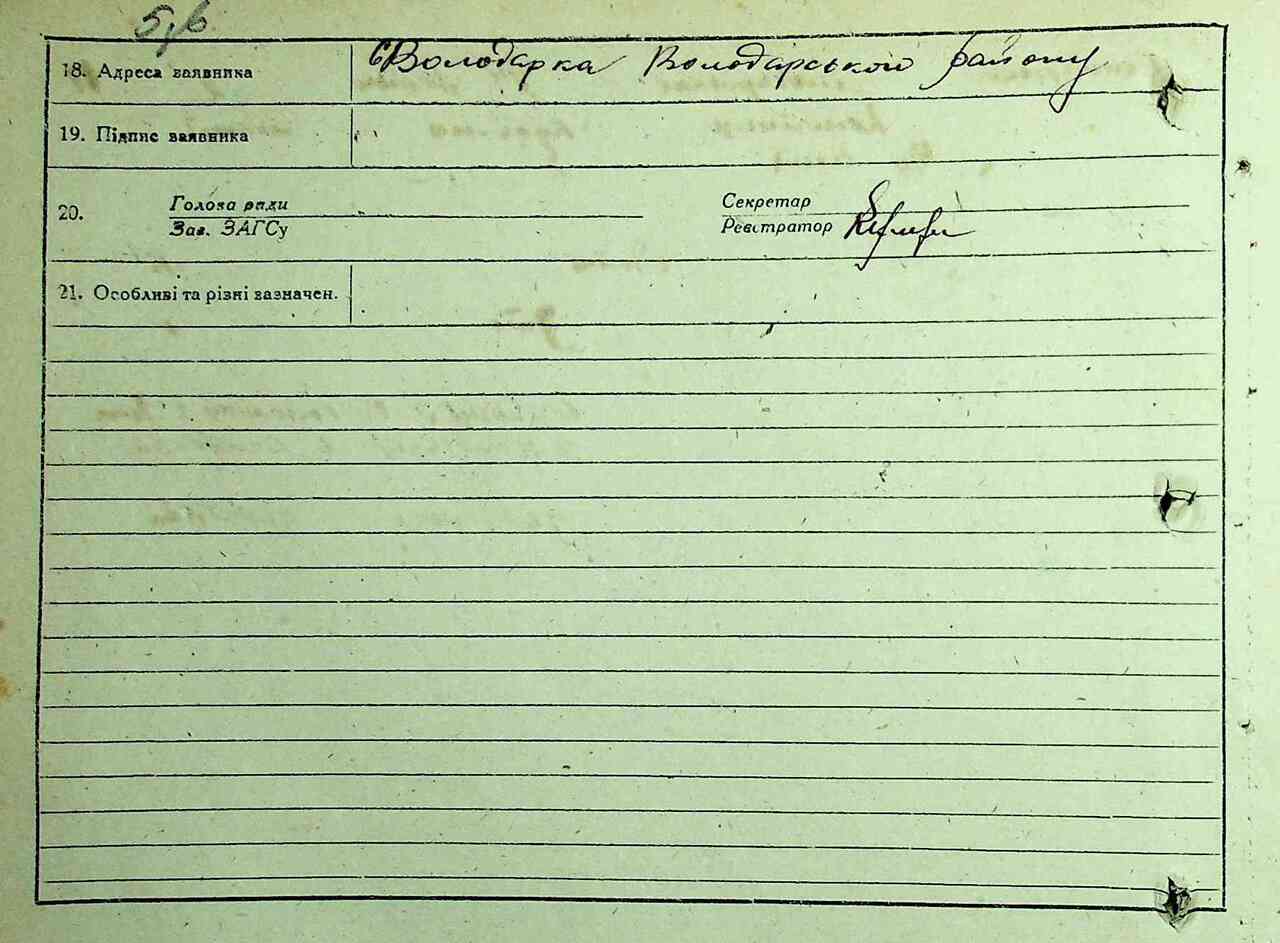 18. Адреса заявника с Володарка Володарського району
19. Підпис заявника
20. Голова ради Секретар
Зав. ЗАГСу Реєстратор
21. Особливі та різні зазначен.